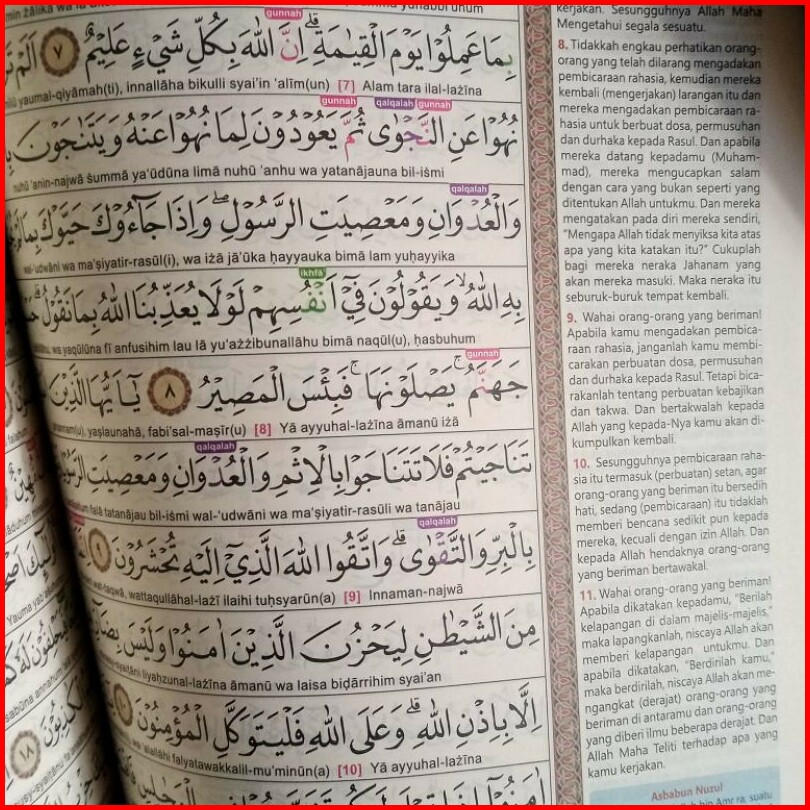 gunnah
بِمَا عَمِلُوْا يَوْمَ الْقِيٰمَةِ ۗ اِنَّ اللّٰهَ بِكُلِّ شَيْءٍ عَلِيْمٌ ٧ اَلَمْ
yaumal-qiyāmah(ti), innallāha bikulli syai'in 'alīm(un) [7] Alam tara ilal-lażīna
gunnah qalqalah gunnah
نُهُوْا عَنِ النَّجْوٰى ثُمَّ يَعُوْدُوْنَ لِمَا نُهُوْا عَنْهُ وَيَتَنٰجَوْنَ
nuhū 'anin-najwā ṡumma ya'ūdūna limā nuhū 'anhu wa yatanājauna bil-iṡmi
qalqalah
وَالْعُدْوَانِ وَمَعْصِيَتِ الرَّسُوْلِ ۖ وَاِذَا جَاۤءُوْكَ حَيَّوْكَ بِمَا
wal-'udwāni wa ma'ṣiyatir-rasūl(i), wa iżā jā'ūka ḥayyauka bimā lam yuḥayyika
ikhfa
بِهِ اللّٰهُ ۙ وَيَقُوْلُوْنَ فِيْٓ اَنْفُسِهِمْ لَوْلَا يُعَذِّبُنَا اللّٰهُ بِمَا نَقُوْلُ ۗ
wa yaqūlūna fī anfusihim lau lā yu'ażżibunallāhu bimā naqūl(u), ḥasbuhum
gunnah
جَهَنَّمُ ۚ يَصْلَوْنَهَا ۚ فَبِئْسَ الْمَصِيْرُ ٨ يٰٓاَيُّهَا الَّذِيْنَ
yaṣlaunahā, fabi'sal-maṣīr(u) [8] Yā ayyuhal-lażīna āmanū iżā
qalqalah
تَنَاجَيْتُمْ فَلَا تَتَنَاجَوْا بِالْاِثْمِ وَالْعُدْوَانِ وَمَعْصِيَتِ
falā tatanājau bil-iṡmi wal-'udwāni wa ma'ṣiyatir-rasūli wa tanājau
qalqalah
بِالْبِرِّ وَالتَّقْوٰى ۗ وَاتَّقُوا اللّٰهَ الَّذِيْٓ اِلَيْهِ تُحْشَرُوْنَ ٩
wat-taqwā, wattaqullāhal-lażī ilaihi tuḥsyarūn(a) [9] Innaman-najwā
مِنَ الشَّيْطٰنِ لِيَحْزُنَ الَّذِيْنَ اٰمَنُوْا وَلَيْسَ
liyaḥzunal-lażīna āmanū wa laisa biḍārrihim syai'an
اِلَّا بِاِذْنِ اللّٰهِ ۗ وَعَلَى اللّٰهِ فَلْيَتَوَكَّلِ الْمُؤْمِنُوْنَ ١٠
wa 'alallāhi falyatawakkalil-mu'minūn(a) [10] Yā ayyuhal-lażīna
kerjakan. Sesungguhnya Allah Maha
Mengetahui segala sesuatu.
8. Tidakkah engkau perhatikan orang-
orang yang telah dilarang mengadakan
pembicaraan rahasia, kemudian mereka
kembali (mengerjakan) larangan itu dan
mereka mengadakan pembicaraan ra-
hasia untuk berbuat dosa, permusuhan
dan durhaka kepada Rasul. Dan apabila
mereka datang kepadamu (Muham-
mad), mereka mengucapkan salam
dengan cara yang bukan seperti yang
ditentukan Allah untukmu. Dan mereka
mengatakan pada diri mereka sendiri,
"Mengapa Allah tidak menyiksa kita atas
apa yang kita katakan itu?" Cukuplah
bagi mereka neraka Jahanam yang
akan mereka masuki. Maka neraka itu
seburuk-buruk tempat kembali.
9. Wahai orang-orang yang beriman!
Apabila kamu mengadakan pembica-
raan rahasia, janganlah kamu membi-
carakan perbuatan dosa, permusuhan
dan durhaka kepada Rasul. Tetapi bica-
rakanlah tentang perbuatan kebajikan
dan takwa. Dan bertakwalah kepada
Allah yang kepada-Nya kamu akan di-
kumpulkan kembali.
10. Sesungguhnya pembicaraan raha-
sia itu termasuk (perbuatan) setan, agar
orang-orang yang beriman itu bersedih
hati, sedang (pembicaraan) itu tidaklah
memberi bencana sedikit pun kepada
mereka, kecuali dengan izin Allah. Dan
kepada Allah hendaknya orang-orang
yang beriman bertawakal.
11. Wahai orang-orang yang beriman!
Apabila dikatakan kepadamu, "Berilah
kelapangan di dalam majelis-majelis,"
maka lapangkanlah, niscaya Allah akan
memberi kelapangan untukmu. Dan
apabila dikatakan, "Berdirilah kamu,"
maka berdirilah, niscaya Allah akan me-
ngangkat (derajat) orang-orang yang
beriman di antaramu dan orang-orang
yang diberi ilmu beberapa derajat. Dan
Allah Maha Teliti terhadap apa yang
kamu kerjakan.
Asbabun Nuzul